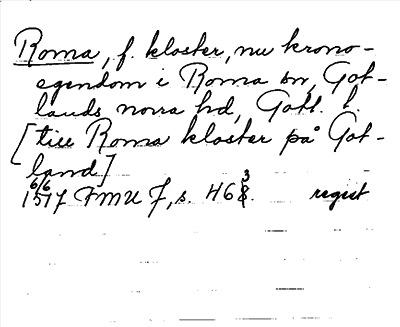 Roma, f. kloster, nu krono-
egendom i Roma sn, Got-
lands norra hd, Gotl. l.
[till Roma kloster på Got-
land]
6/6 1517 FMU 7, s. 463. regist